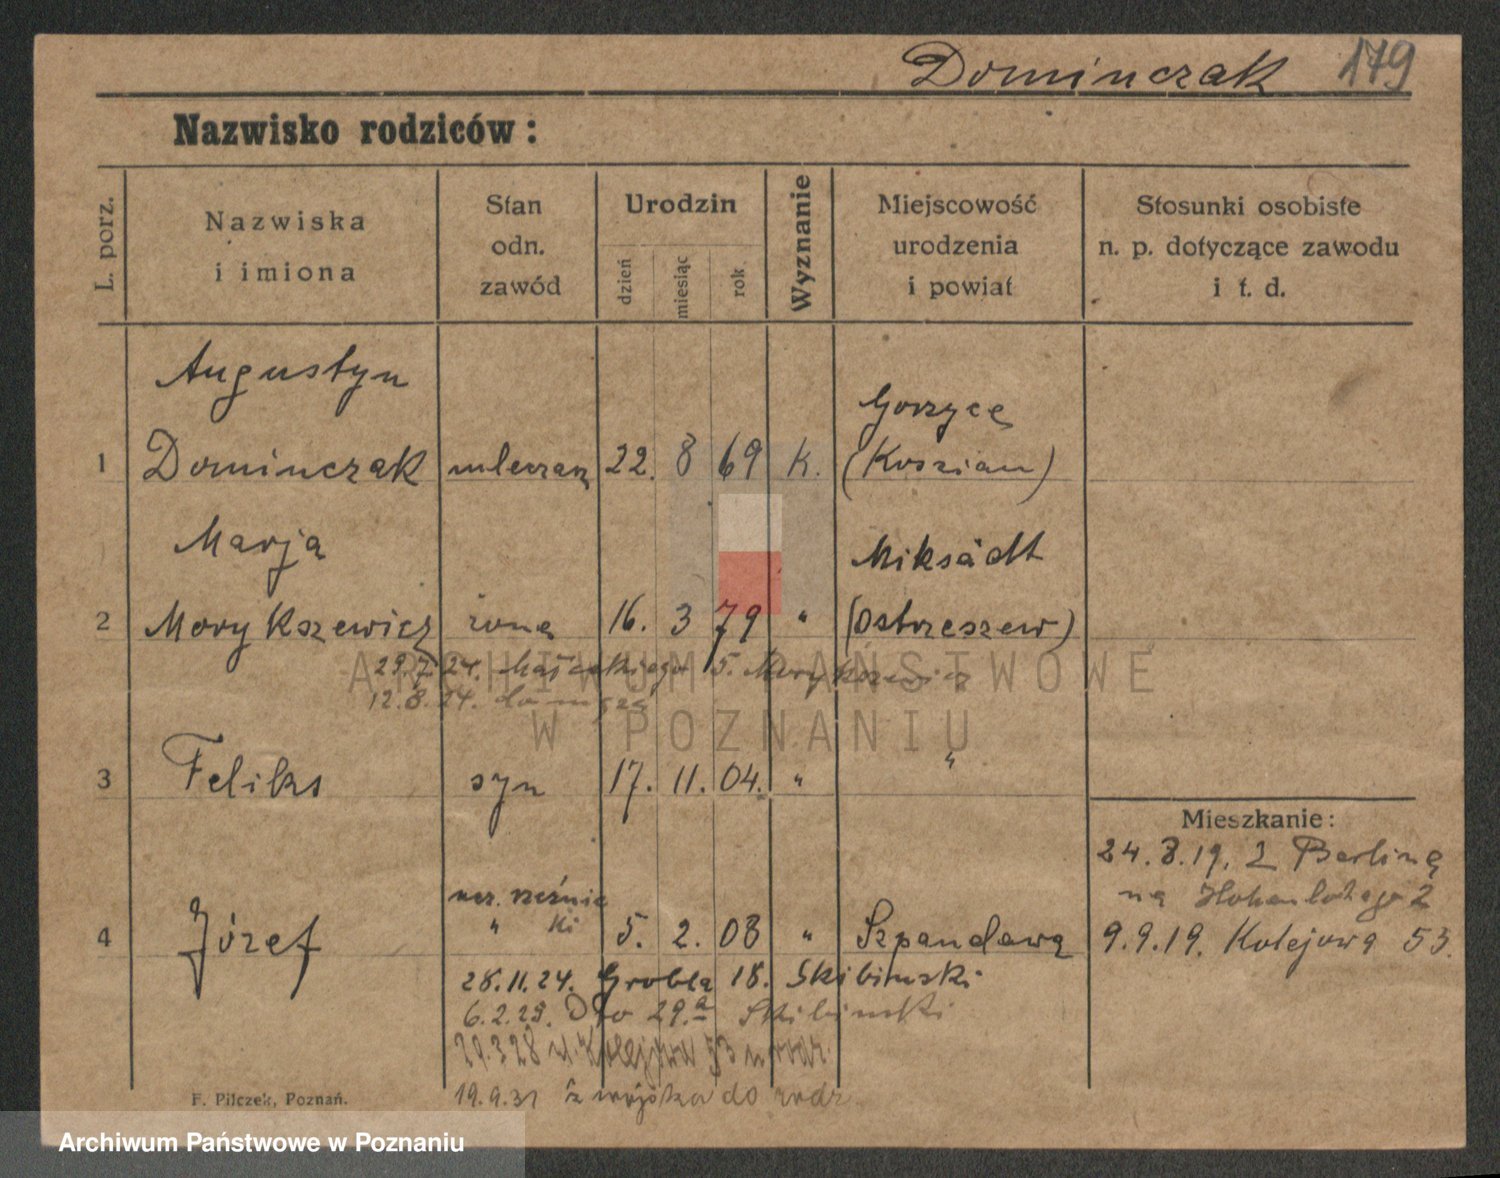 Dominczak 179
Nazwisko rodziców:
L. porz.
Nazwiska
i imiona
Stan
odn.
zawód
Urodzin
dzień
miesiąc
rok
Wyznanie
Miejscowość
urodzenia
i powiat
Stosunki osobiste
n. p. dotyczące zawodu
i t. d.
Augustyn
Gorzyce
1 Dominczak mleczarz 22. 8 69 K. (Koszian)
Marja
Miksädt
2 Morykszewicz żona 16. 3 79 " (Ostrzeszew)
29.7.24. 5. Morykszewicz
12.8.24. do męża
"
3 Feliks syn 17. 11. 04. "
Mieszkanie:
24.8.19. Z Berlina
na 2
ucz. rzeźnic
" ki
4 Józef 5. 2. 08 " Szpandawa 9.9.19. Kolejowa 53.
28.11.24. Grobla 18. Skibinski
6.2.25. Dto 29.a Skibinski
Kolejowa 53 u rodz.
19.9.31 z wojska do rodz.
F. Pilczek, Poznań.
ARCHIWUM PAŃSTWOWE
W POZNANIU
Archiwum Państwowe w Poznaniu